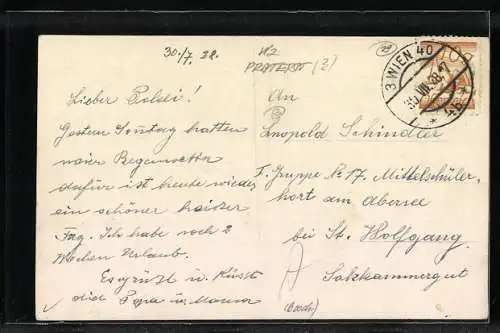 30./7. 28.
W2
PRATERST (2)
3 WIEN 40
30. VII. 28.
* 4b *
Lieber Poldi!
Gestern Sonntag hatten
wir Regenwetter
dafür ist heute wieder
ein schöner heißer
Tag. Ich habe noch 2
Wochen Urlaub.
Es grüßt u. küsst
dich Papa u. Mama
An
Leopold Schindler
F. Gruppe № 17. Mittelschüler-
hort am Abersee
bei St. Wolfgang
Salzkammergut